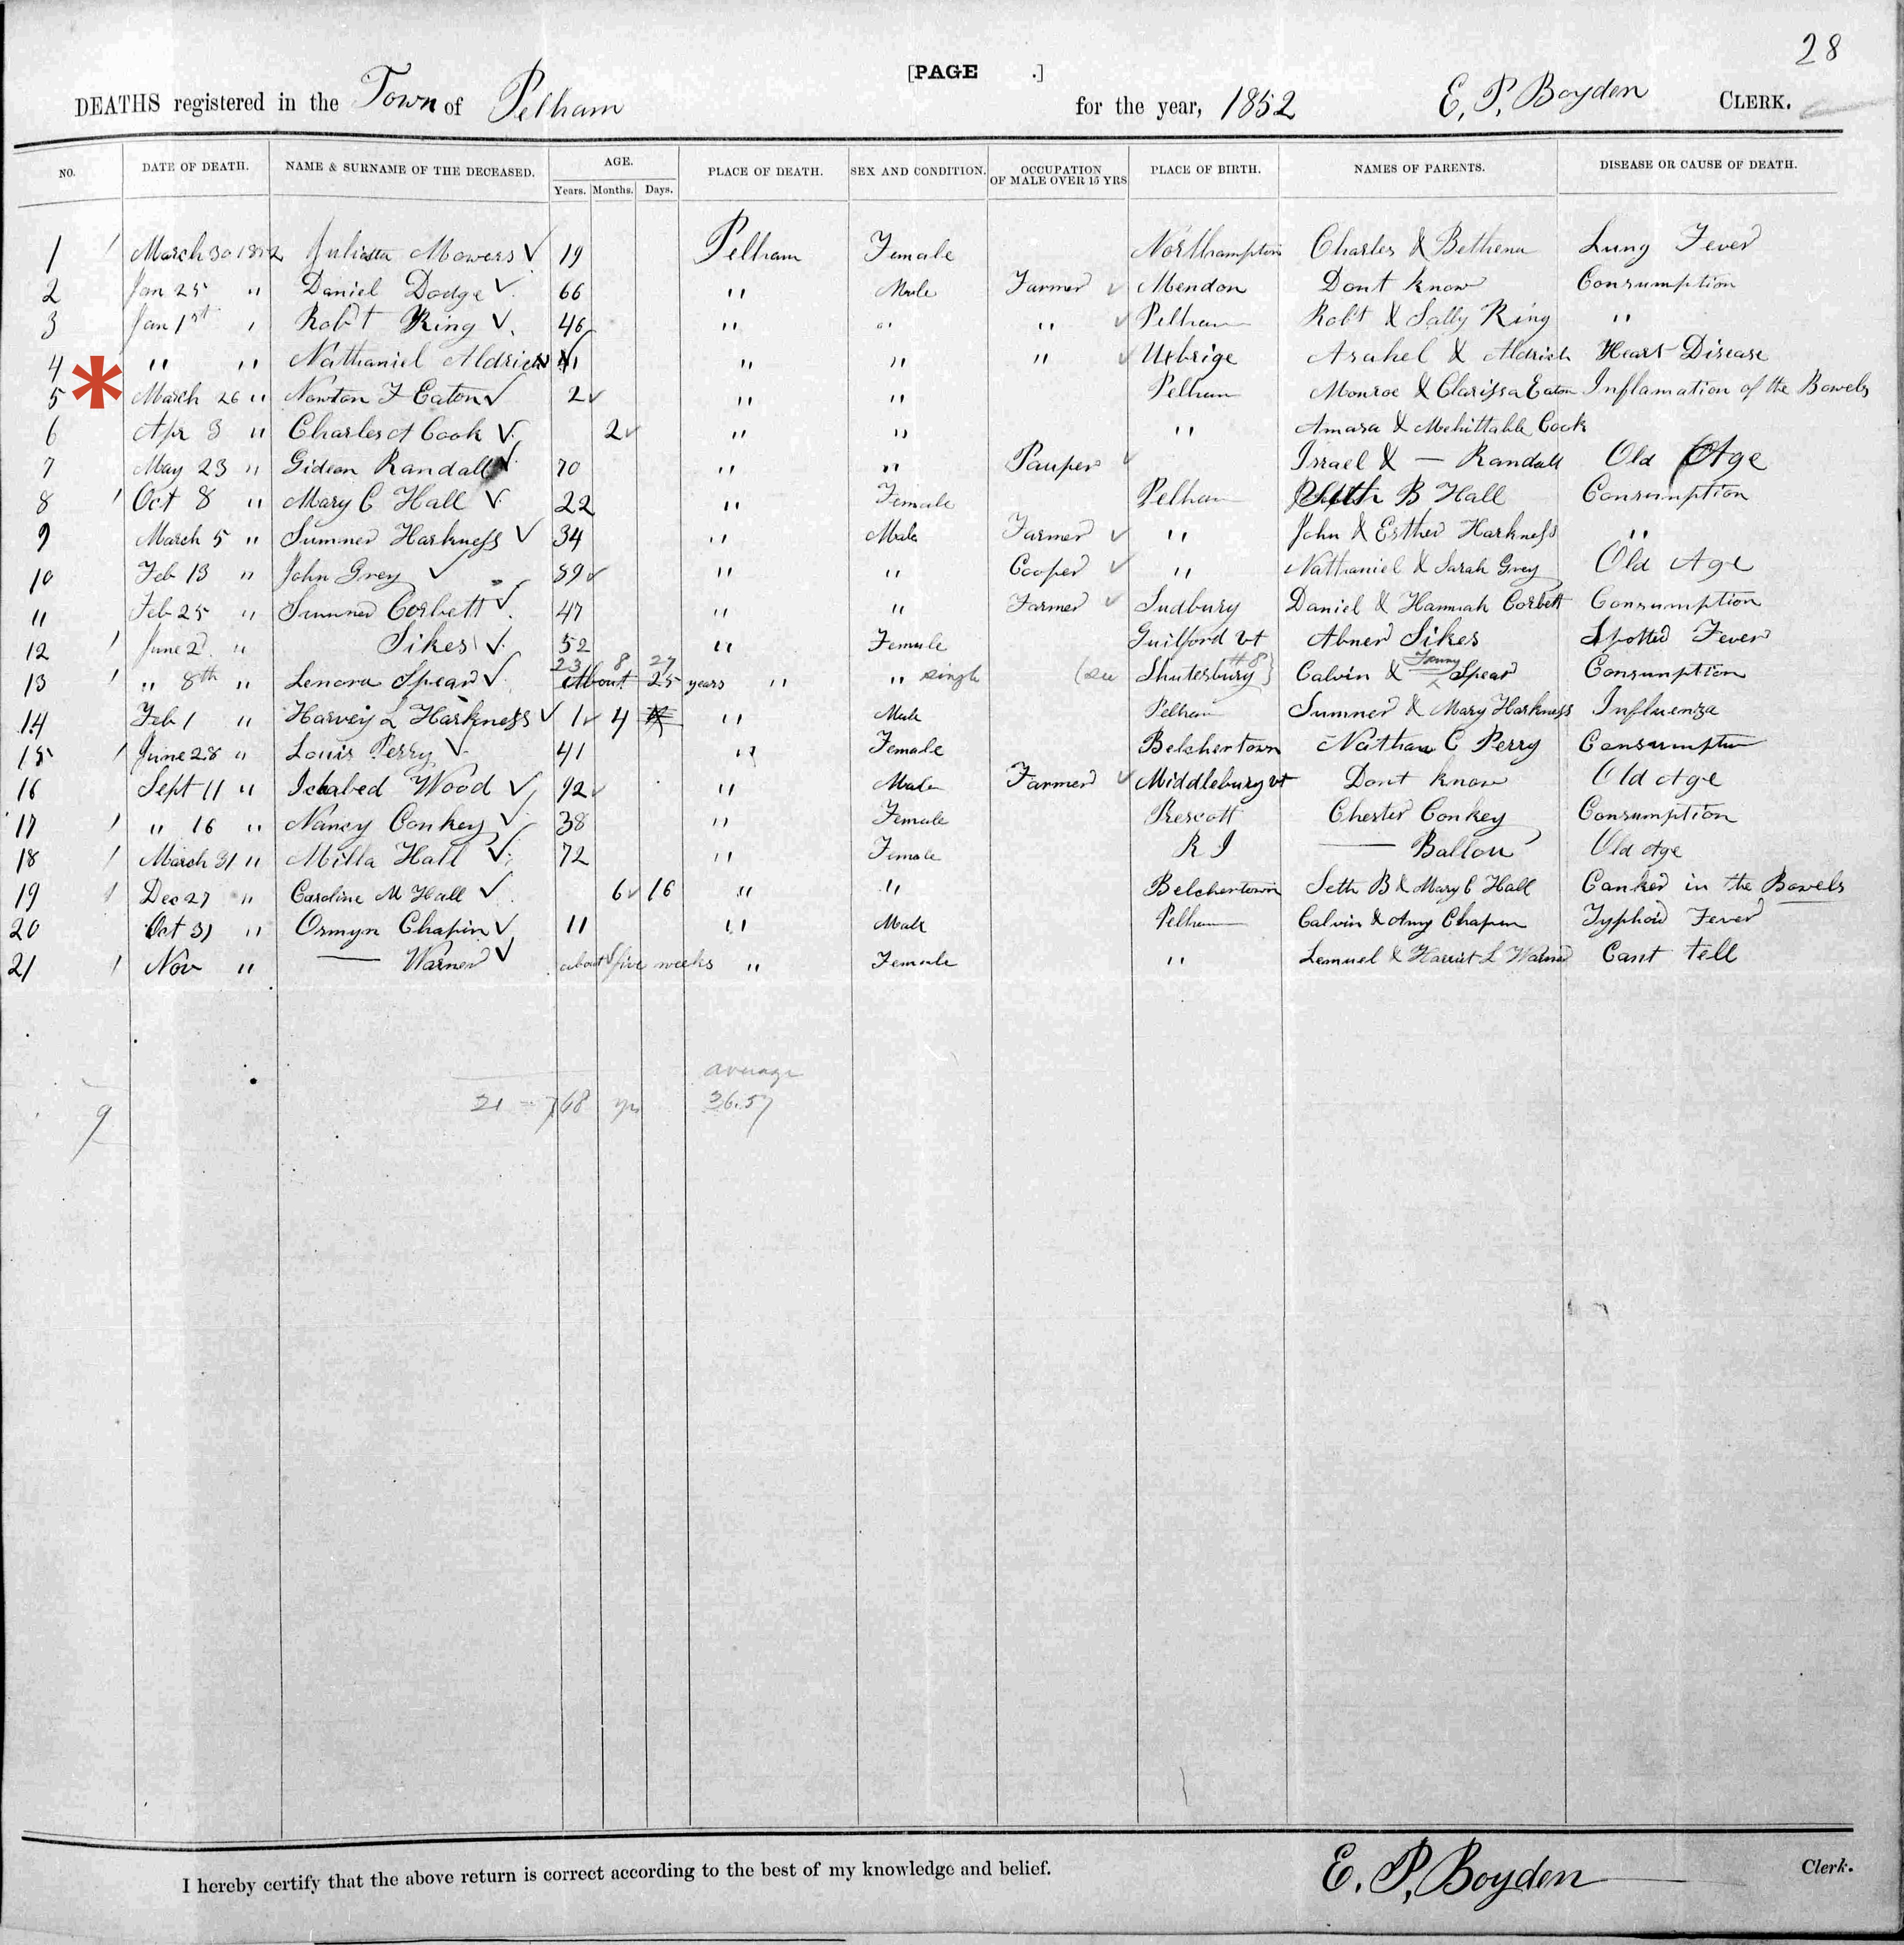 28
[PAGE .]
DEATHS registered in the Town of Pelham for the year, 1852 E. P. Boyden CLERK.
NO. DATE OF DEATH. NAME & SURNAME OF THE DECEASED. AGE. PLACE OF DEATH. SEX AND CONDITION. OCCUPATION OF MALE OVER 15 YRS PLACE OF BIRTH. NAMES OF PARENTS. DISEASE OR CAUSE OF DEATH.
Years. Months. Days.
1 / March 30 1852 Mowers ✓ 19 Pelham Female Northampton Charles & Bethena Lung Fever
2 Jan 25 " Daniel Dodge ✓ 66 " Male Farmer ✓ Mendon Dont know Consumption
3 Jan 1st " Robt King ✓ 46 " " " ✓ Pelham Robt & Sally King "
4 " " Nathaniel Aldrich ✓ " " " ✓ Uxbrige Asahel & Aldrich Heart Disease
* 5 March 26 " Newton F Eaton ✓ 2 ✓ " " Pelham Monroe & Clarissa Eaton Inflamation of the Bowels
6 Apr 3 " Charles A Cook ✓ 2 ✓ " " " Amasa & Mehittable Cook
7 May 23 " Gideon Randall ✓ 70 " " Pauper ✓ Israel & — Randall Old Age
8 / Oct 8 " Mary C Hall ✓ 22 " Female Pelham Seth B Hall Consumption
9 March 5 " Sumner Harkness ✓ 34 " Male Farmer ✓ " John & Esther Harkness "
10 Feb 13 " John Grey ✓ 89 ✓ " " Cooper ✓ " Nathaniel & Sarah Grey Old Age
11 Feb 25 " Sumner Corbett ✓ 47 " " Farmer ✓ Sudbury Daniel & Hannah Corbett Consumption
12 / June 2 " Sikes ✓ 52 " Female Guilford vt Abner Sikes Spotted Fever
23 8 27 #8 Fanny
13 / " 8th " Lenora Spear ✓ About 25 years " " single (see Shutesbury } Calvin & Spear Consumption
14 Feb 1 " Harvey L Harkness ✓ 1 ✓ 4 " Male Pelham Sumner & Mary Harkness Influenza
15 / June 28 " Louis Perry ✓ 41 " Female Belchertown Nathan C Perry Consumption
16 Sept 11 " Ichabed Wood ✓ 92 ✓ " Male Farmer ✓ Middlebury vt Dont know Old Age
17 / " 16 " Nancy Conkey ✓ 38 " Female Prescott Chester Conkey Consumption
18 / March 31 " Milla Hall ✓ 72 " Female R I — Ballou Old Age
19 / Dec 27 " Caroline M Hall ✓ 6 ✓ 16 " " Belchertown Seth B & Mary C Hall Canker in the Bowels
20 Oct 31 " Ormyn Chapin ✓ 11 " Male Pelham Calvin & Amy Chapin Typhoid Fever
21 / Nov " — Warner ✓ about five weeks " Female " Lemuel & Harriet L Warner Cant tell
average
21 = 768 yrs 36.57
9
I hereby certify that the above return is correct according to the best of my knowledge and belief. E. P. Boyden Clerk.